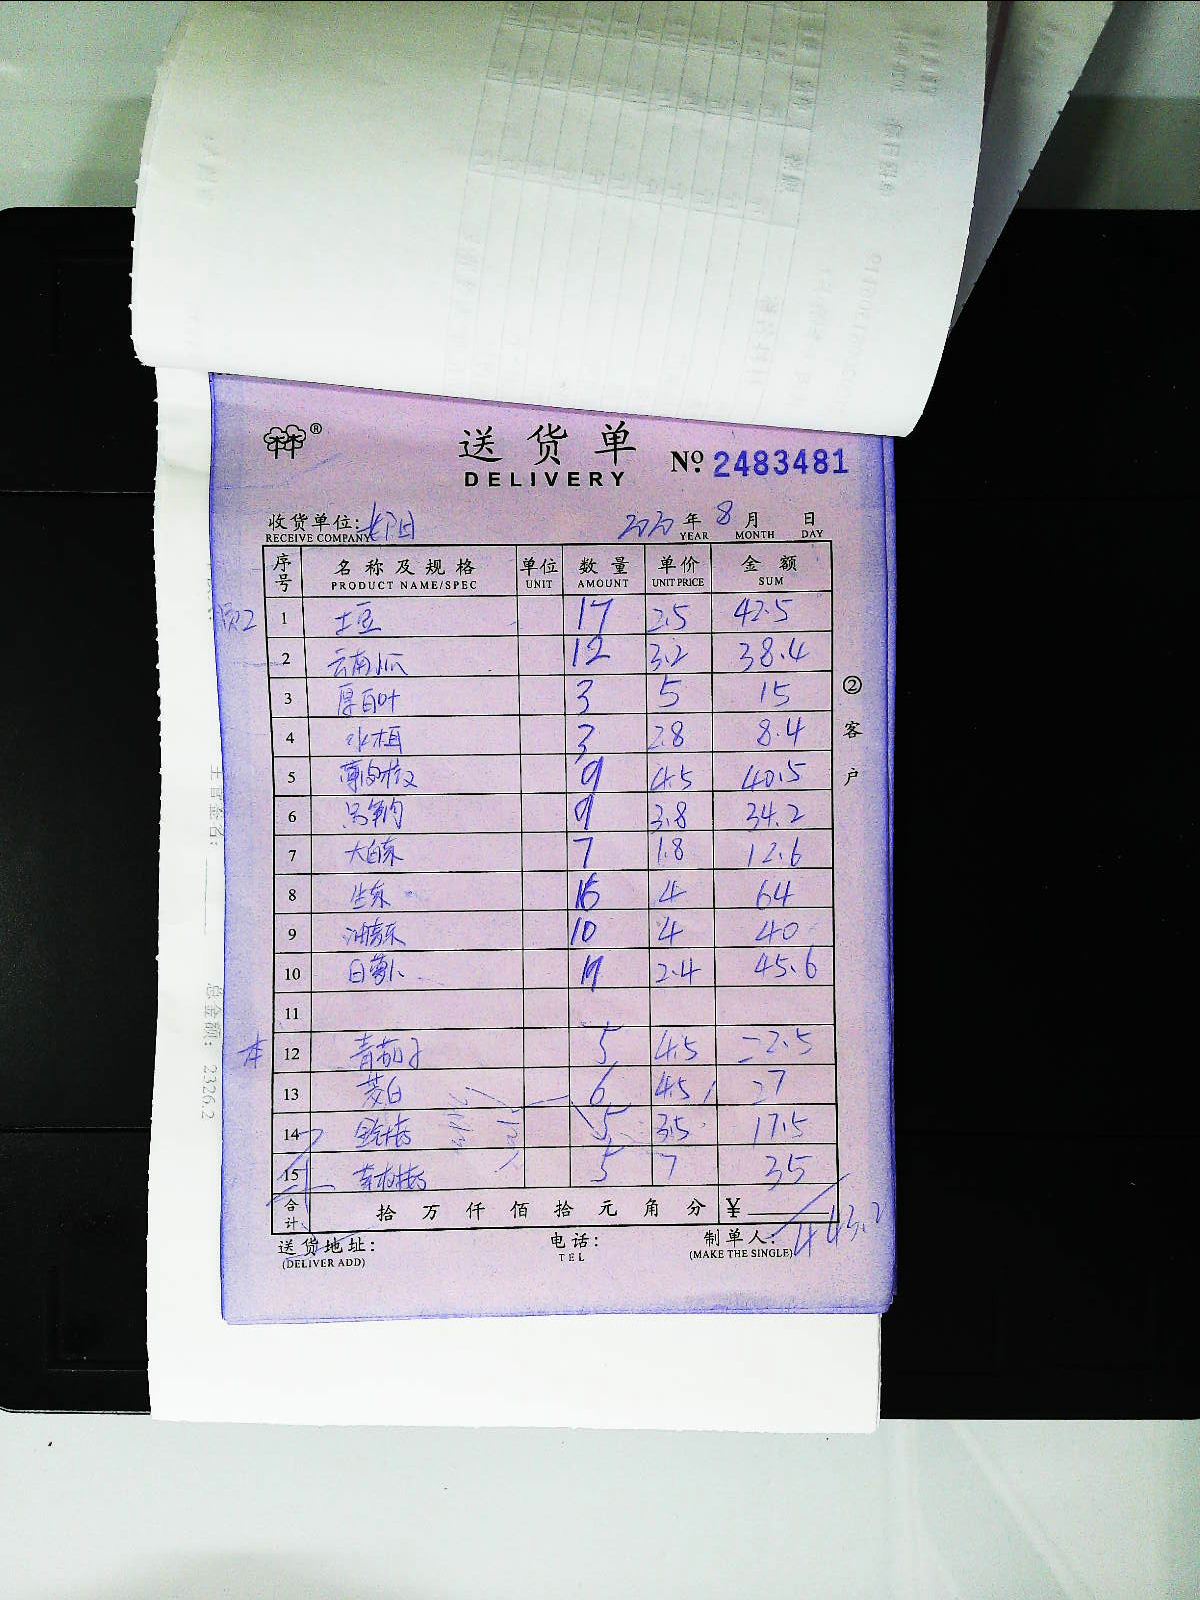 送货单
DELIVERY
No. 2483481
收货单位:
RECEIVE COMPANY
2020 年 8 月 日
YEAR MONTH DAY
序号 名称及规格 单位 数量 单价 金额
PRODUCT NAME/SPEC UNIT AMOUNT UNIT PRICE SUM
1 土豆 17 2.5 42.5
2 云南小瓜 12 3.2 38.4
3 厚百叶 3 5 15
4 3 2.8 8.4
5 9 4.5 40.5
6 9 3.8 34.2
7 大白菜 7 1.8 12.6
8 生菜 16 4 64
9 油麦菜 10 4 40
10 白萝卜 19 2.4 45.6
11
12 青茄子 5 4.5 22.5
13 茭白 6 4.5 27
14 5 3.5 17.5
15 5 7 35
合计 拾 万 仟 佰 拾 元 角 分 ¥
443.2
送货地址: 电话: 制单人:
(DELIVER ADD) TEL (MAKE THE SINGLE)
②客户
主管签名:
总金额: 2326.2